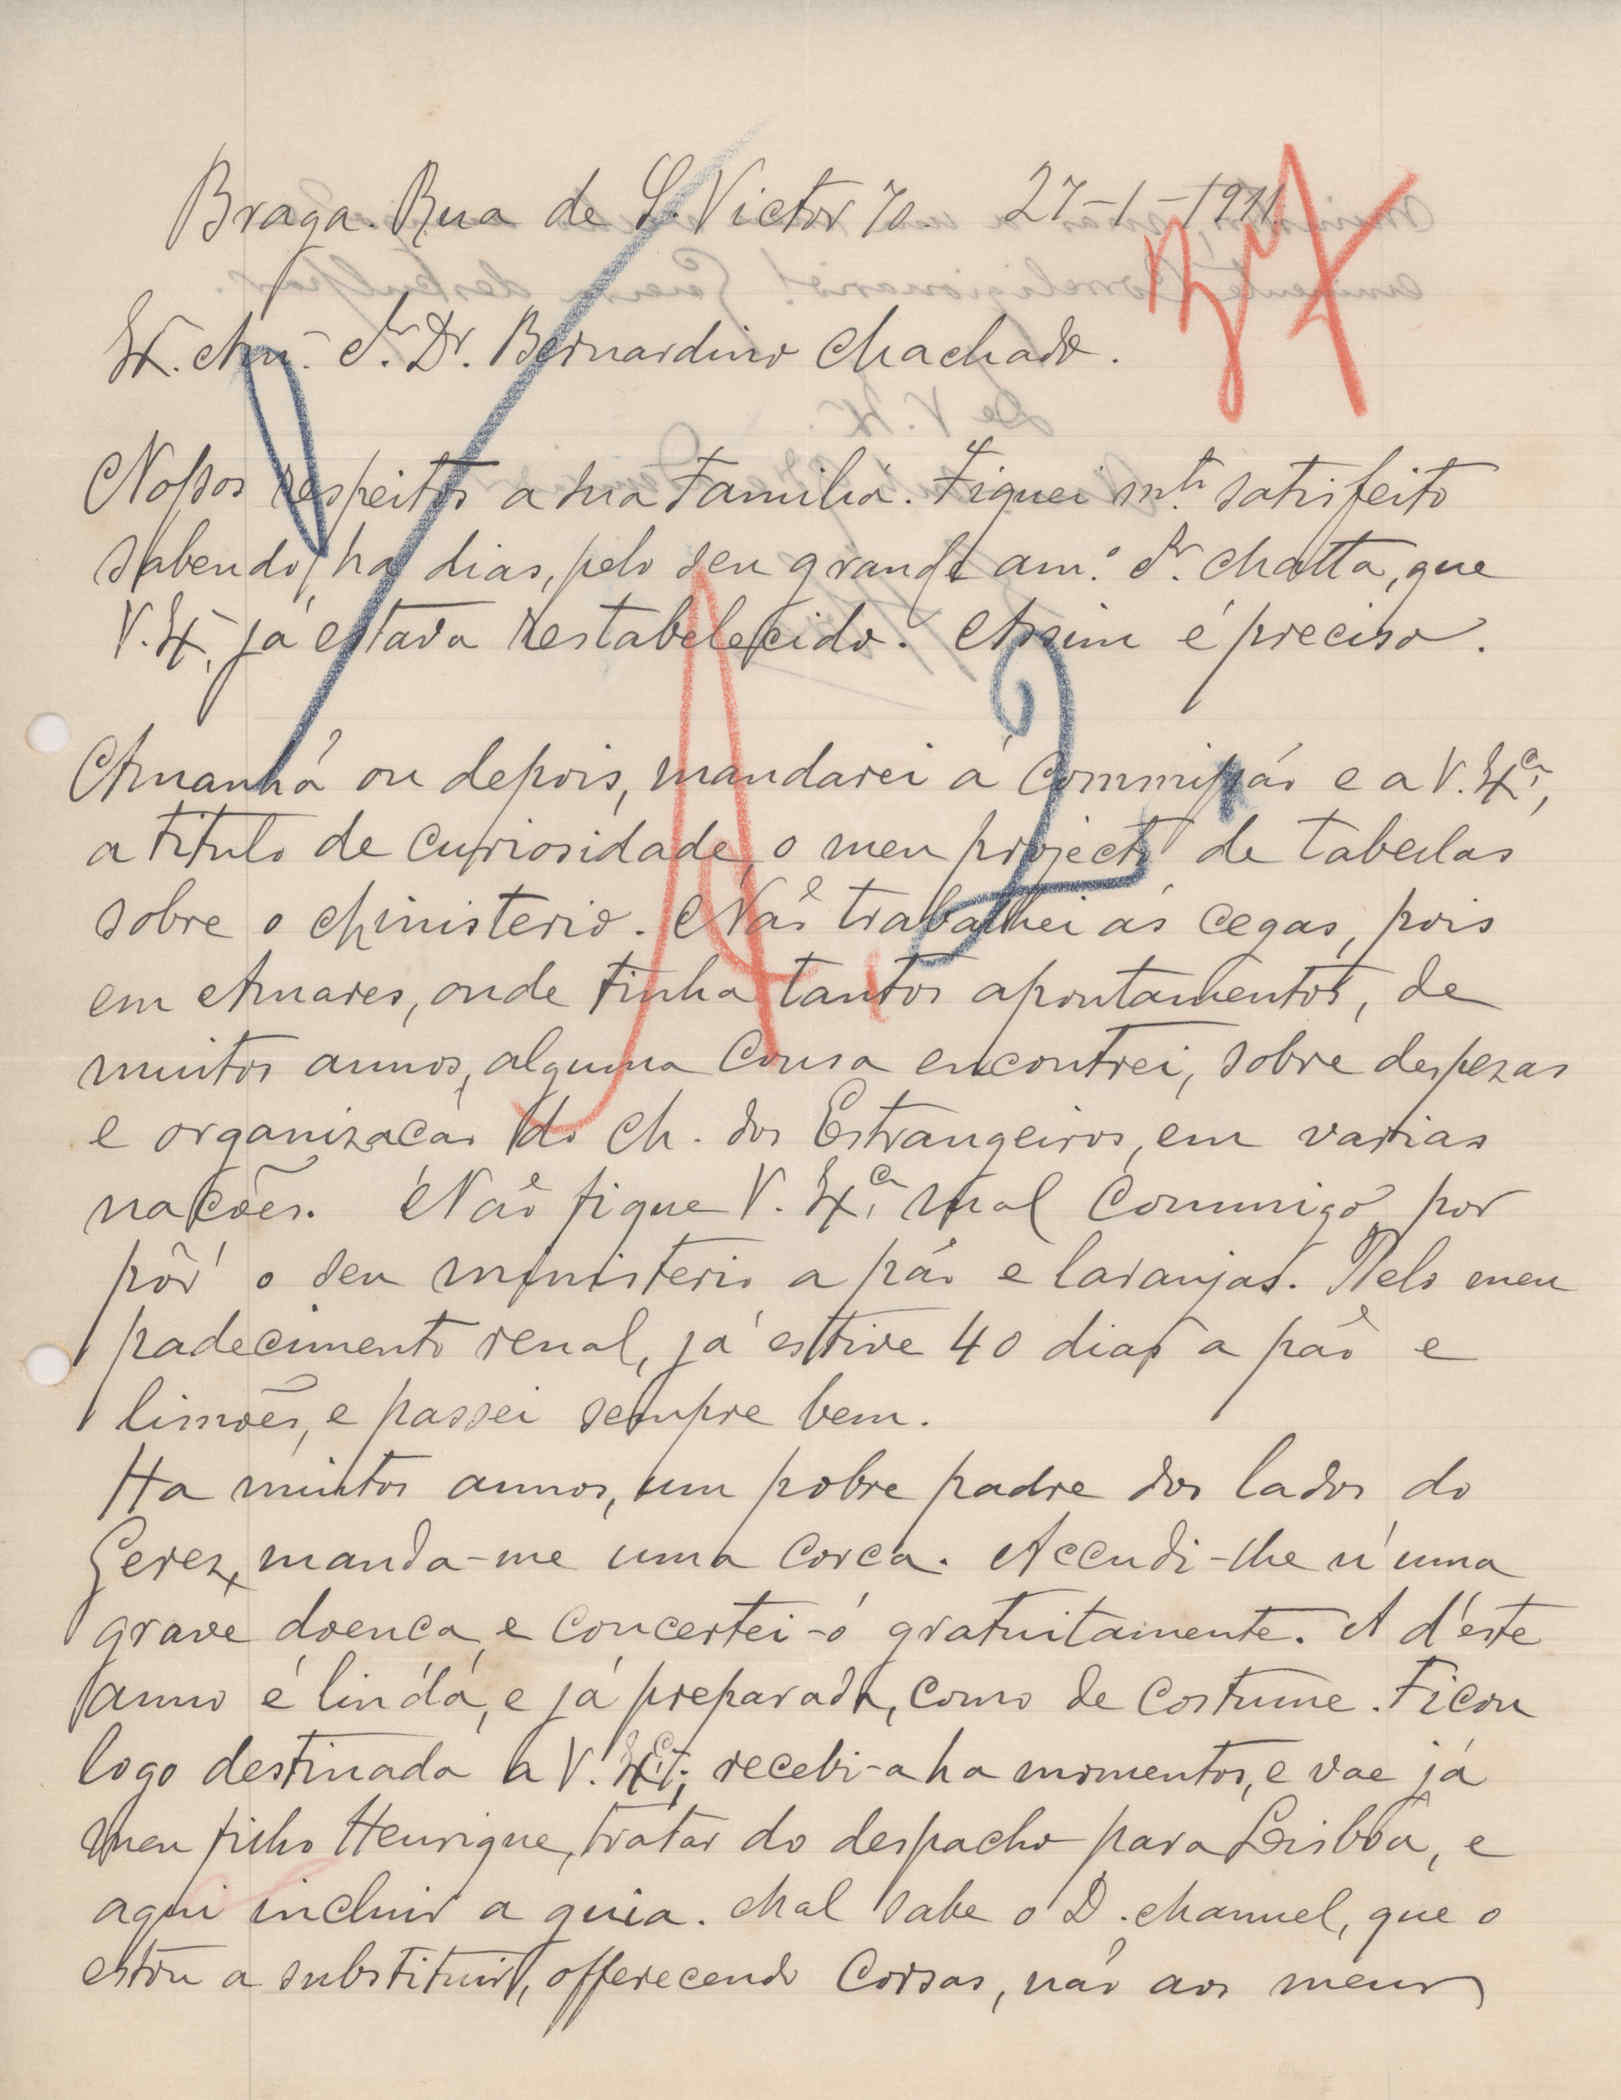 Braga. Rua de S. Victor 70. 27-1-1911.
Ex.mo Sr. Dr. Bernardino Machado.
Nossos respeitos a sua Familia. Fiquei mto. satisfeito
sabendo, ha dias, pelo seu grande am.o Sr. Matta, que
V. Ex. já estava restabelecido. Assim é preciso.
Amanhã ou depois, mandarei á Commissão e a V. Exca.,
a titulo de curiosidade, o meu projecto de tabellas
sobre o Ministerio. Não trabalhei ás cegas, pois
em Amares, onde tinha tantos apontamentos, de
muitos annos, alguma cousa encontrei, sobre despezas
e organizacão do M. dos Estrangeiros, em varias
nações. Não fique V. Exca. mal commigo por
pôr o seu ministerio a pão e laranjas. Pelo meu
padecimento renal, já estive 40 dias a pão e
limões, e passei sempre bem.
Ha muitos annos, um pobre padre dos lados do
Gerez, manda-me uma corca. Accudi-lhe n'uma
grave doenca, e concertei-o gratuitamente. A d'este
anno é linda, e já preparada, como de costume. Ficou
logo destinada a V. Exca.; recebi-a ha momentos, e vae já
meu filho Henrique, tratar do despacho para Lisbôa, e
aqui incluir a guia. Mal sabe o D. Manuel, que o
estou a substituir, offerecendo corsas, não aos meus